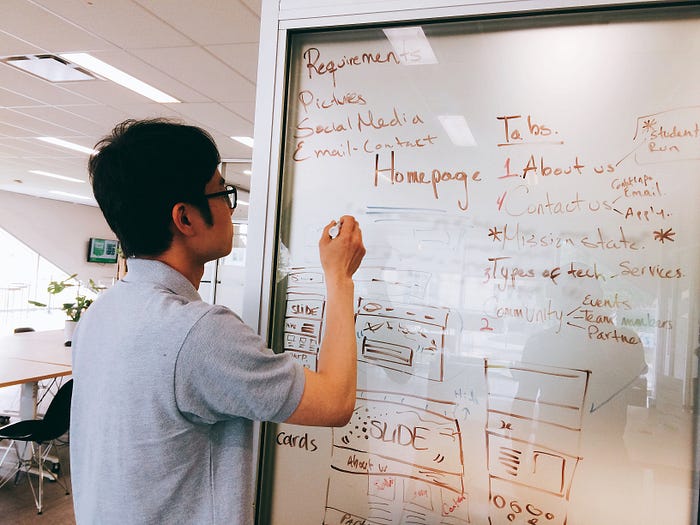 Requirements
Pictures
Social Media
Email-Contact
Homepage
Tabs.
1. About us
* Student
Run
4 Contact us
Email.
Apply.
* Mission state. *
3 Types of tech Services.
2 Community
Events
Team members
Partner
SLIDE
SLIDE
cards
About us